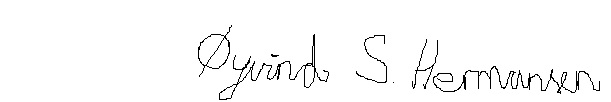 Øyvind S. Hermansen